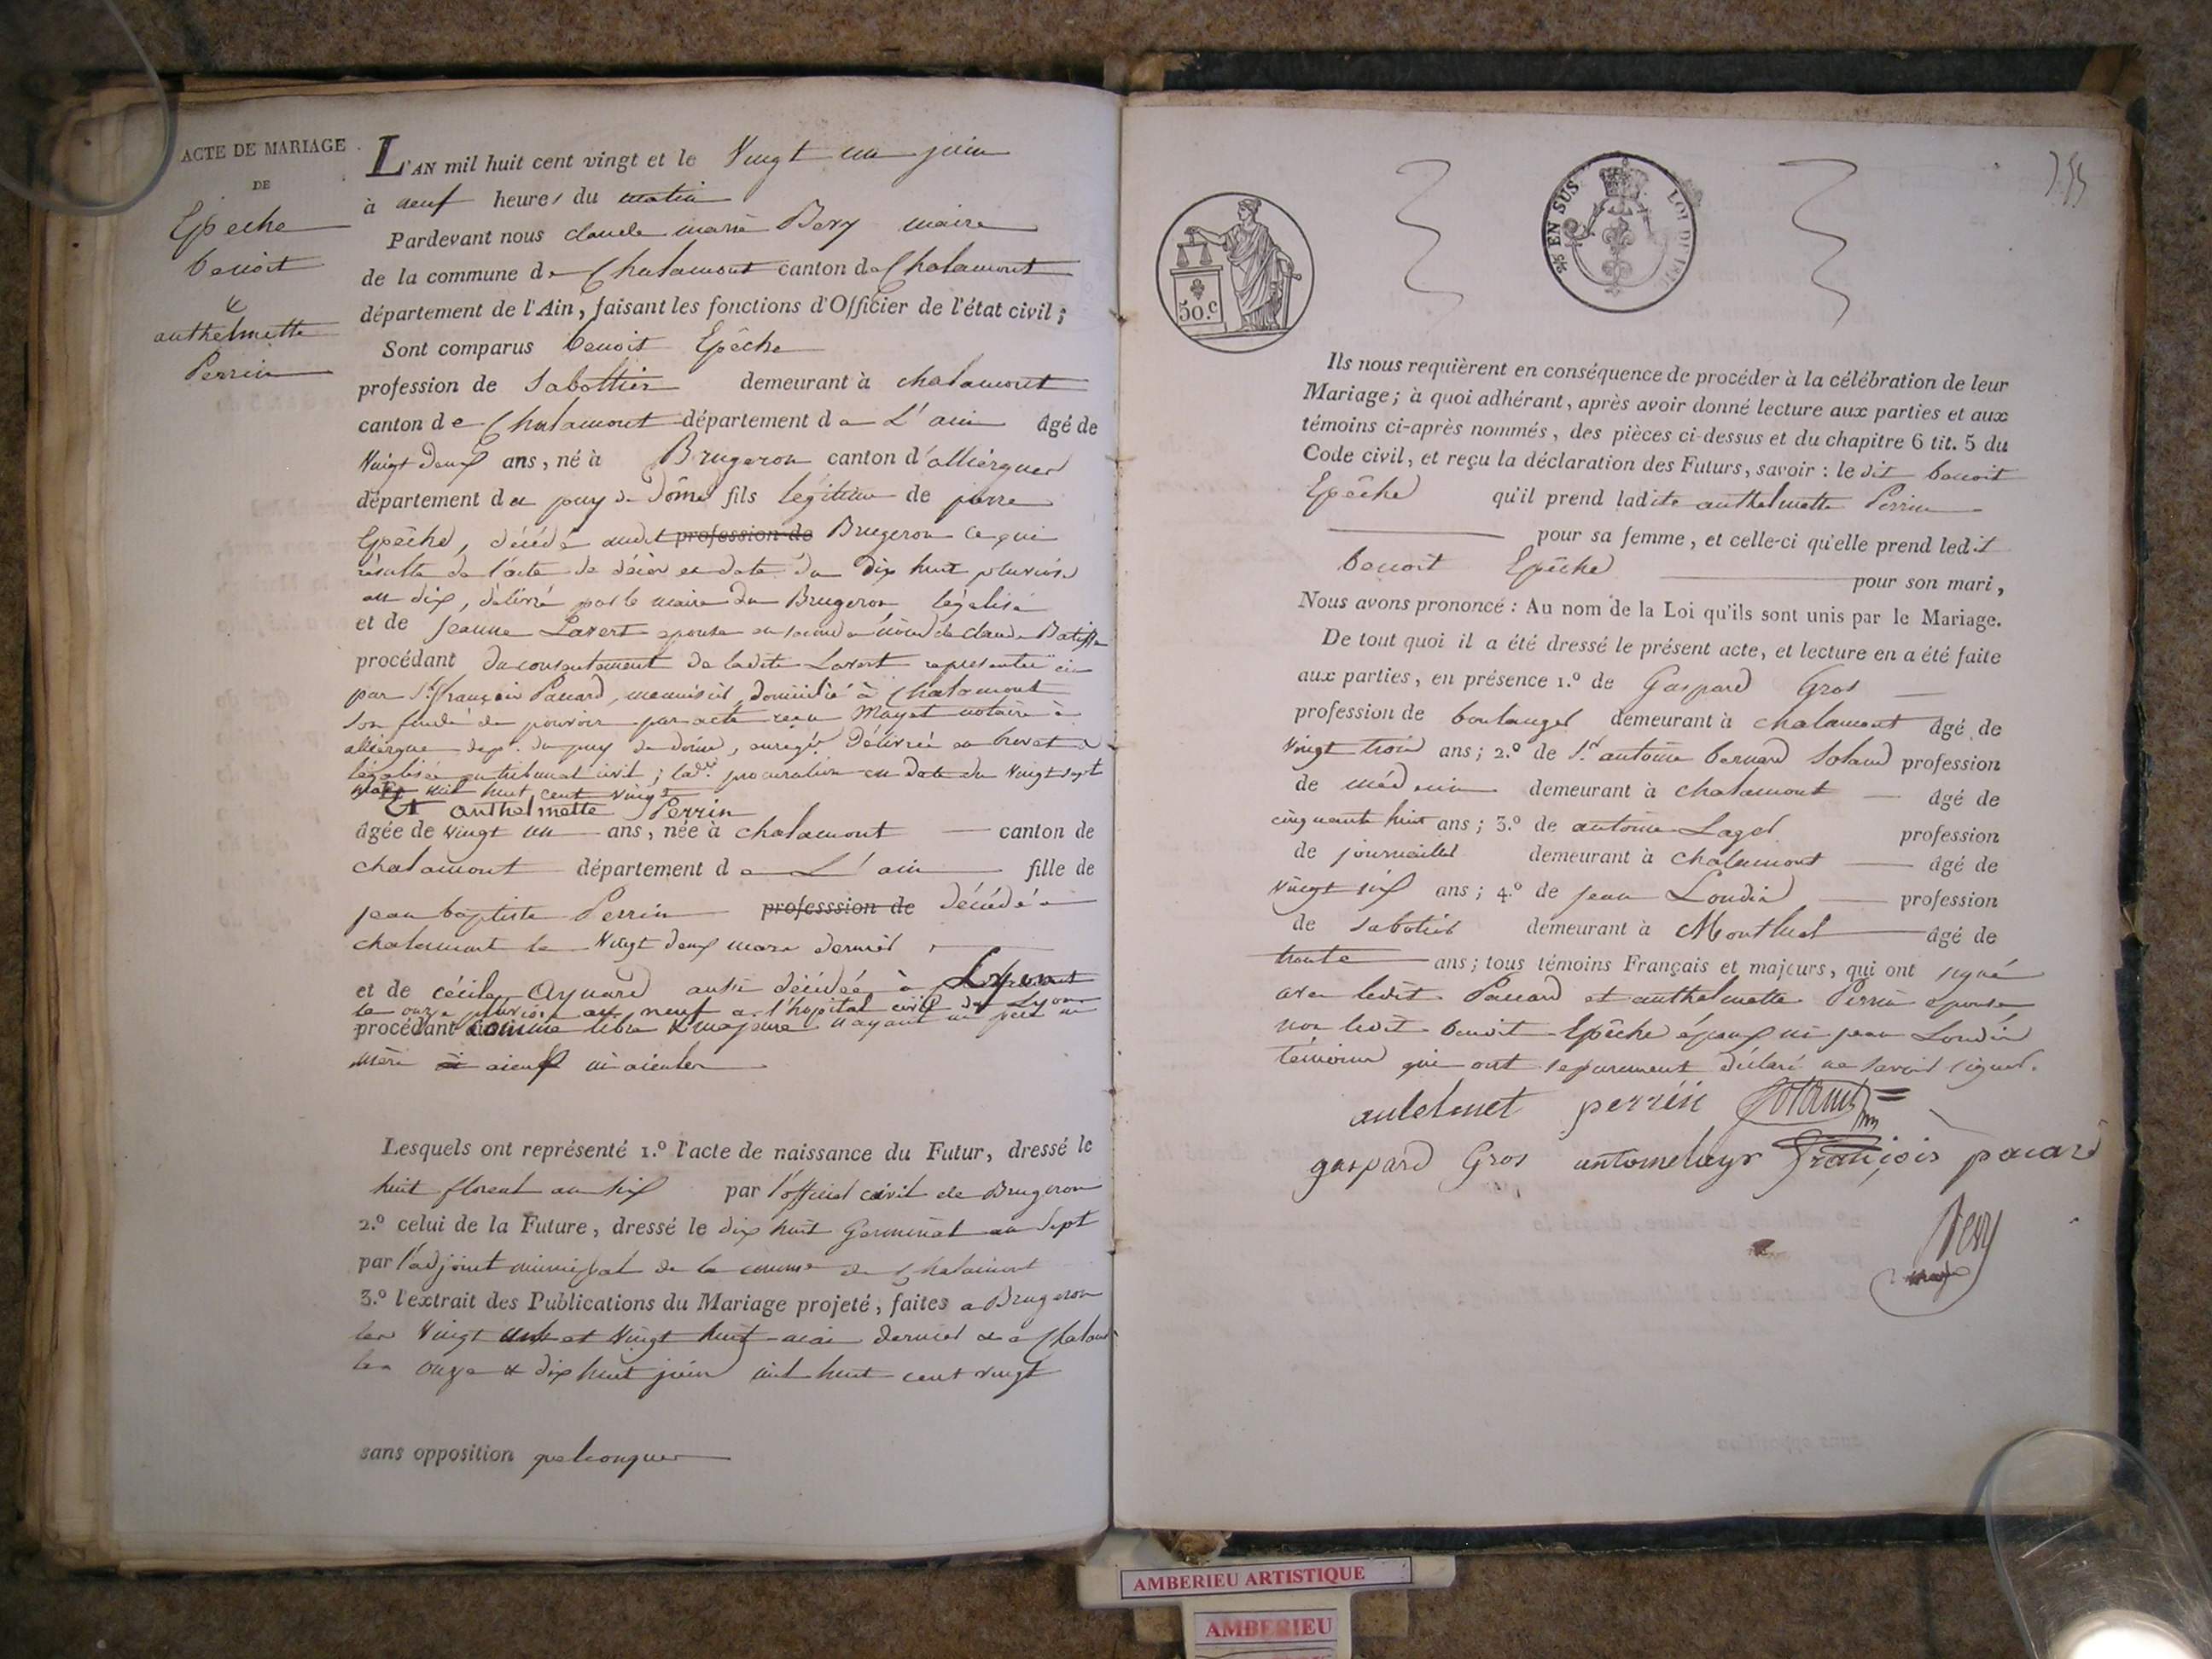 ACTE DE MARIAGE
DE
Epeche
benoit
&
anthelmette
Perrin
L'AN mil huit cent vingt et le Vingt un juin
à neuf heures du matin
Pardevant nous claude marie Bery maire
de la commune de Chalamont canton de Chalamont
département de l'Ain, faisant les fonctions d'Officier de l'état civil;
Sont comparus benoit Epêche
profession de Sabottier demeurant à chalamont
canton de Chalamont département de L'ain âgé de
Vingt deux ans, né à Brugeron canton d'olliergues
département du puy de Dôme fils légitime de pierre
Epêche, décédé audit profession de Brugeron ce qui
résulte de l'acte de décès en date du dix huit pluviose
an dix, délivré par le maire du Brugeron légalisé
et de Jeanne Lavert epouse en seconde nôce de claude Batisse
procédant du consentement de ladite Lavert representée ici
par Sr françois Pacard, menuisier, domicilié à Chalamont
son fondé de pouvoir par acte reçu Mayet notaire à
olliergue dept. du puy de dome, enregé. Délivrée en brevet &
légalisée au tribunal civil; ladte. procuration en date du Vingt sept
mars mil huit cent vingt
Et anthelmette Perrin
âgée de vingt un ans, née à chalamont canton de
chalamont département de L'ain fille de
jean baptiste Perrin professsion de décédé à
chalamont le Vingt deux mars dernier
et de cécile Aynard aussi décédée à Lyon
le onze pluviose an neuf a l'hopital civil de Lyon
procédant comme libre & majeure n'ayant ni père ni
mère ni aieux ni aieules
Lesquels ont représenté 1.º l'acte de naissance du Futur, dressé le
huit floreal an six par l'officier civil de Brugeron
2.º celui de la Future, dressé le dix huit Germinal an Sept
par l'adjoint municipal de la comme de Chalamont
3.º l'extrait des Publications du Mariage projeté, faites a Brugeron
les Vingt et Vingt huit mai dernier & a Chalamt
les onze & dix huit juin mil huit cent vingt
sans opposition quelconque
50.c
2/5 EN SUS
LOI DU 1816
155
Ils nous requièrent en conséquence de procéder à la célébration de leur
Mariage; à quoi adhérant, après avoir donné lecture aux parties et aux
témoins ci-après nommés, des pièces ci-dessus et du chapitre 6 tit. 5 du
Code civil, et reçu la déclaration des Futurs, savoir : le dit benoit
Epêche qu'il prend ladite anthelmette Perrin
pour sa femme, et celle-ci qu'elle prend ledit
benoit Epêche pour son mari,
Nous avons prononcé : Au nom de la Loi qu'ils sont unis par le Mariage.
De tout quoi il a été dressé le présent acte, et lecture en a été faite
aux parties, en présence 1.º de Gaspard Gros
profession de boulanger demeurant à chalamont âgé de
Vingt trois ans; 2.º de Sr antoine bernard Soland profession
de médecin demeurant à chalamont âgé de
cinquante huit ans; 3.º de antoine Lager profession
de journailler demeurant à chalamont âgé de
Vingt six ans; 4.º de jean Loudin profession
de sabotier demeurant à Montluel âgé de
trente ans; tous témoins Français et majeurs, qui ont signé
avec ledit Pacard et anthelmette Perrin epouse
non ledit benoit Epêche époux ni jean Loudin
témoins qui ont separement déclaré ne savoir signer.
antelmet perrin Soland
gaspard Gros françois pacard
Bery
maire
AMBERIEU ARTISTIQUE
AMBERIEU